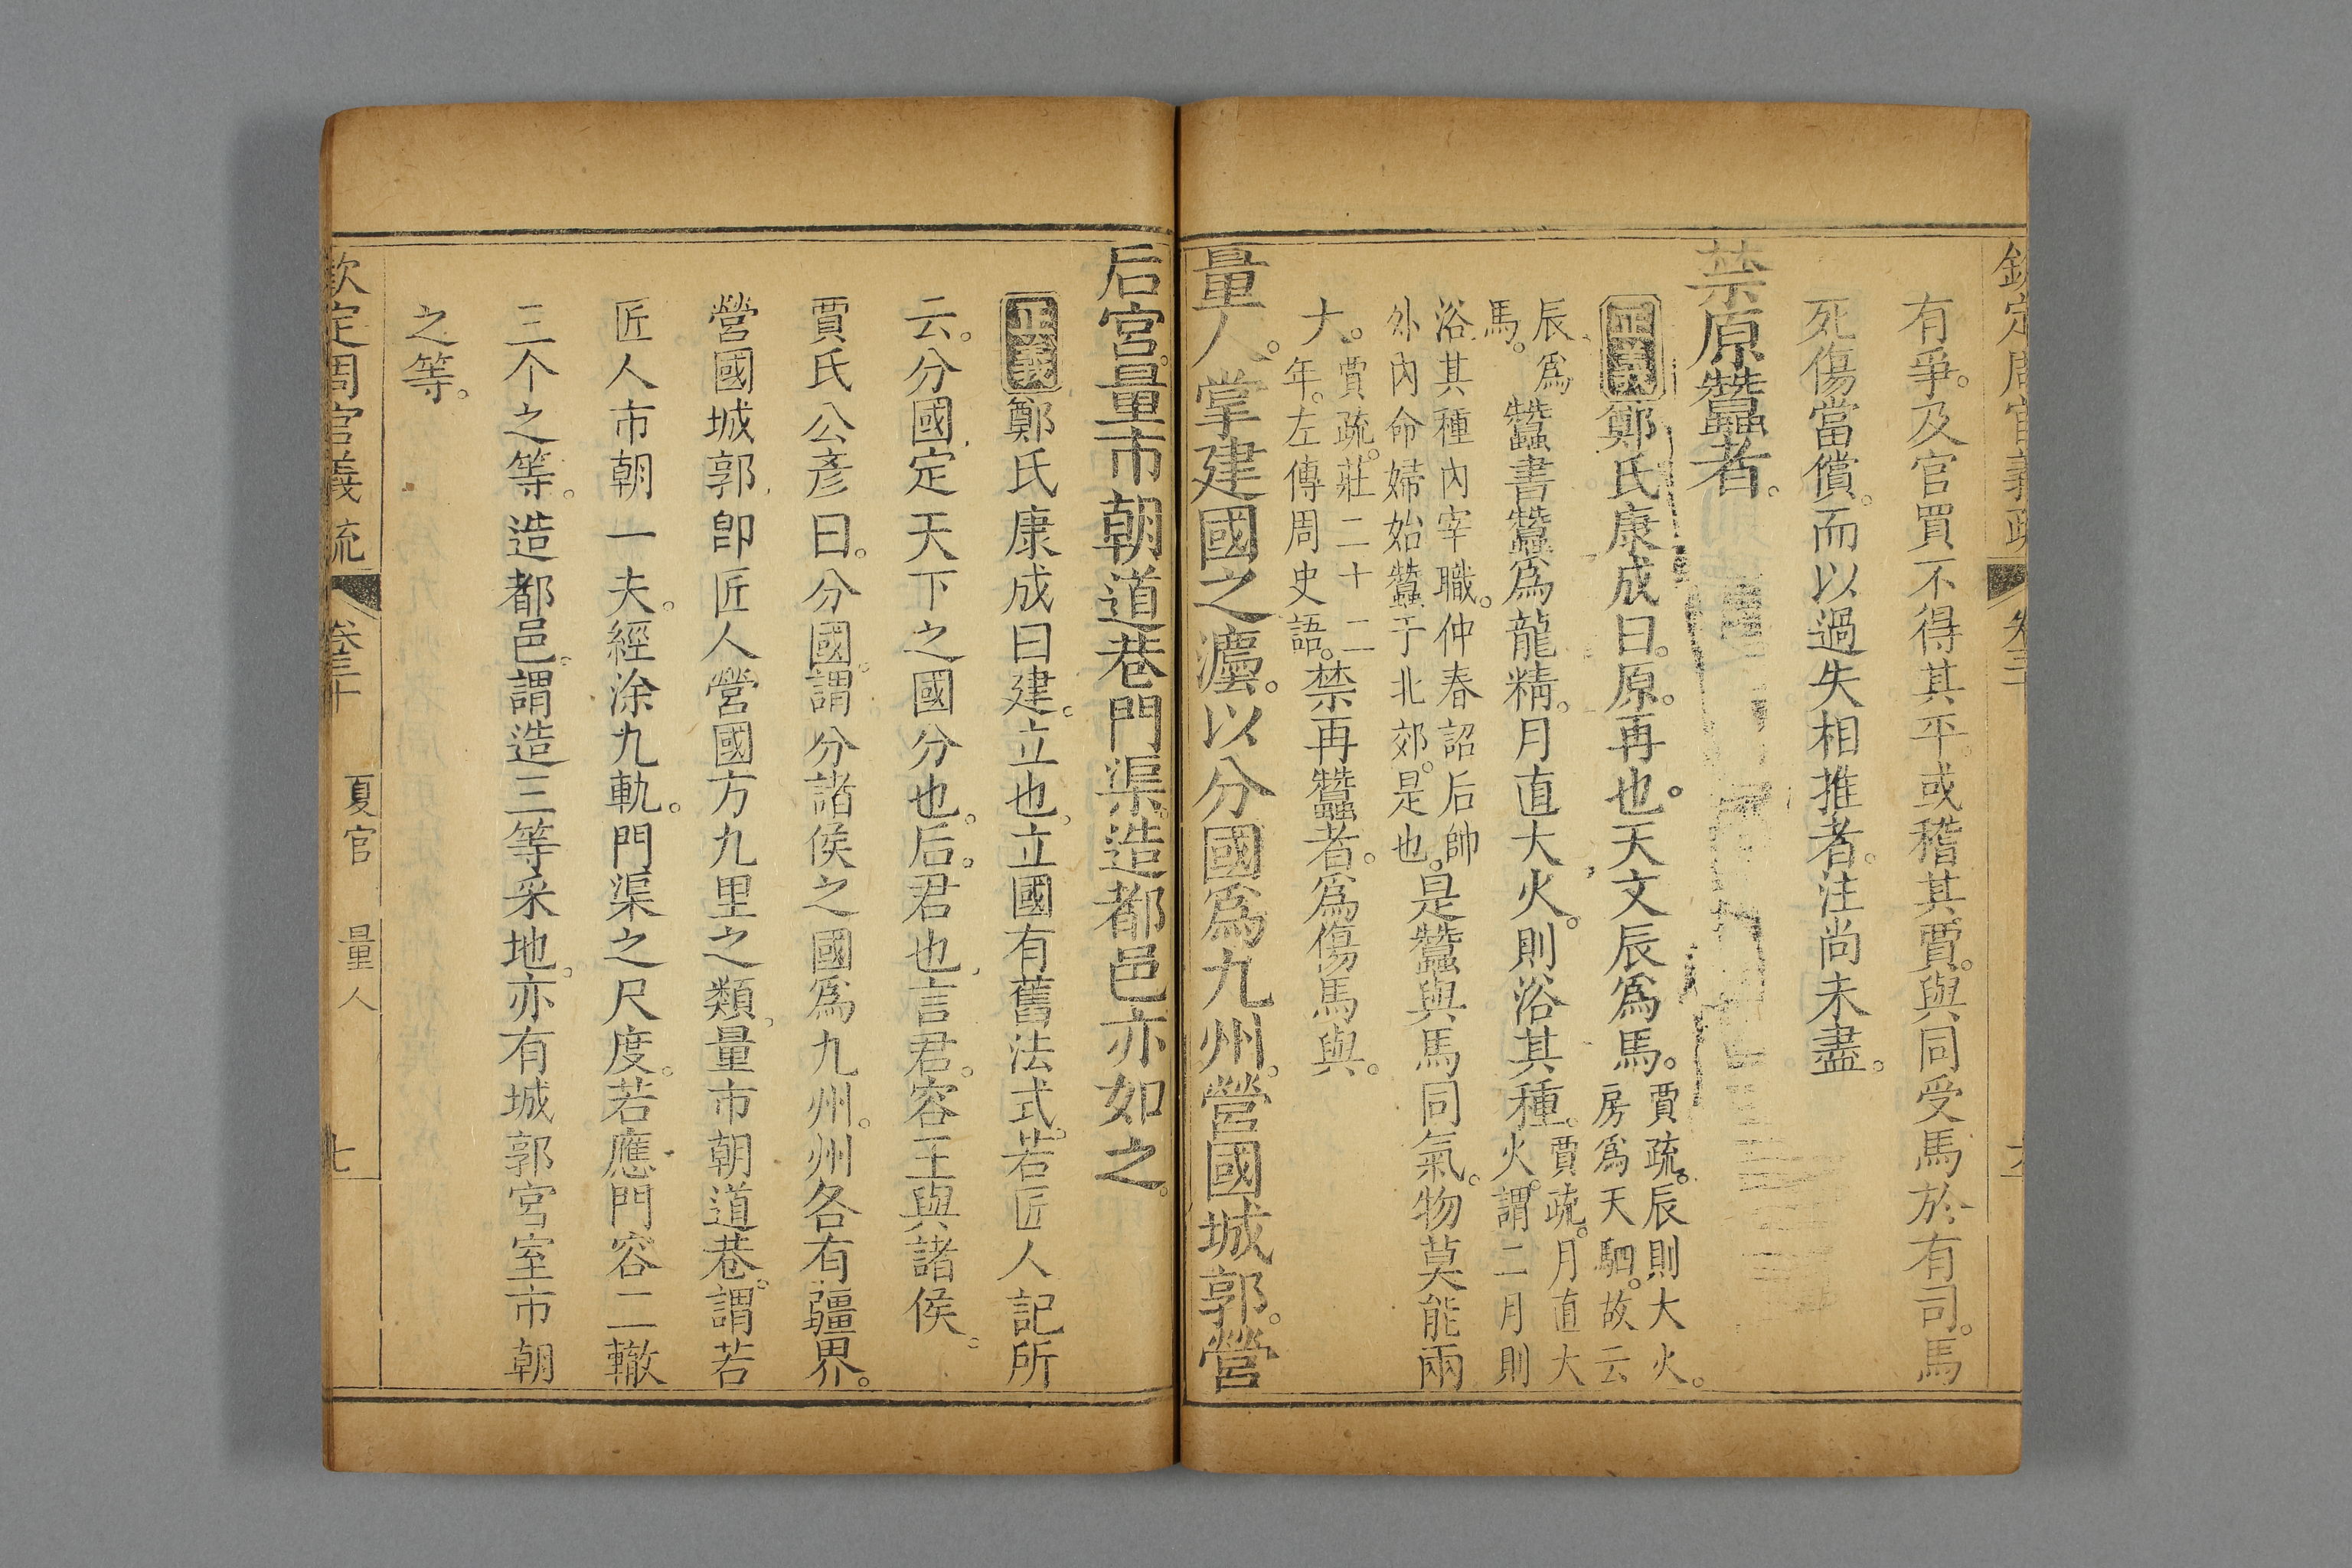 有爭及官買不得其平或稽其賈與同受馬於有司馬
死傷當償而以過失相推者注尚未盡
禁原蠶者
正義鄭氏康成曰原再也天文辰爲馬賈疏辰則大火房爲天駟故云
辰爲馬蠶書蠶爲龍精月直大火則浴其種賈疏月直大火謂二月則
浴其種內宰職仲春詔后帥外內命婦始蠶于北郊是也是蠶與馬同氣物莫能兩
大賈疏莊二十二年左傳周史語禁再蠶者爲傷馬與
量人掌建國之灋以分國爲九州營國城郭營
后宮量市朝道巷門渠造都邑亦如之
正義鄭氏康成曰建立也立國有舊法式若匠人記所
云分國定天下之國分也后君也言君容王與諸侯
賈氏公彥曰分國謂分諸侯之國爲九州州各有疆界
營國城郭卽匠人營國方九里之類量市朝道巷謂若
匠人市朝一夫經涂九軌門渠之尺度若應門容二轍
三个之等造都邑謂造三等采地亦有城郭宮室市朝
之等
欽定周官義疏 卷三十 夏官 量人 七